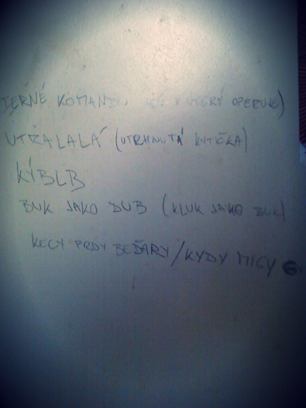 ČERNÉ KOMANDO OPERUJE)
UTRŽALALÁ (UTRHNUTÁ KYTIČKA)
KÝBLB
BUK JAKO DUB (KLUK JAKO BUK)
KECY PRDY BEĎARY/KYDY MICY